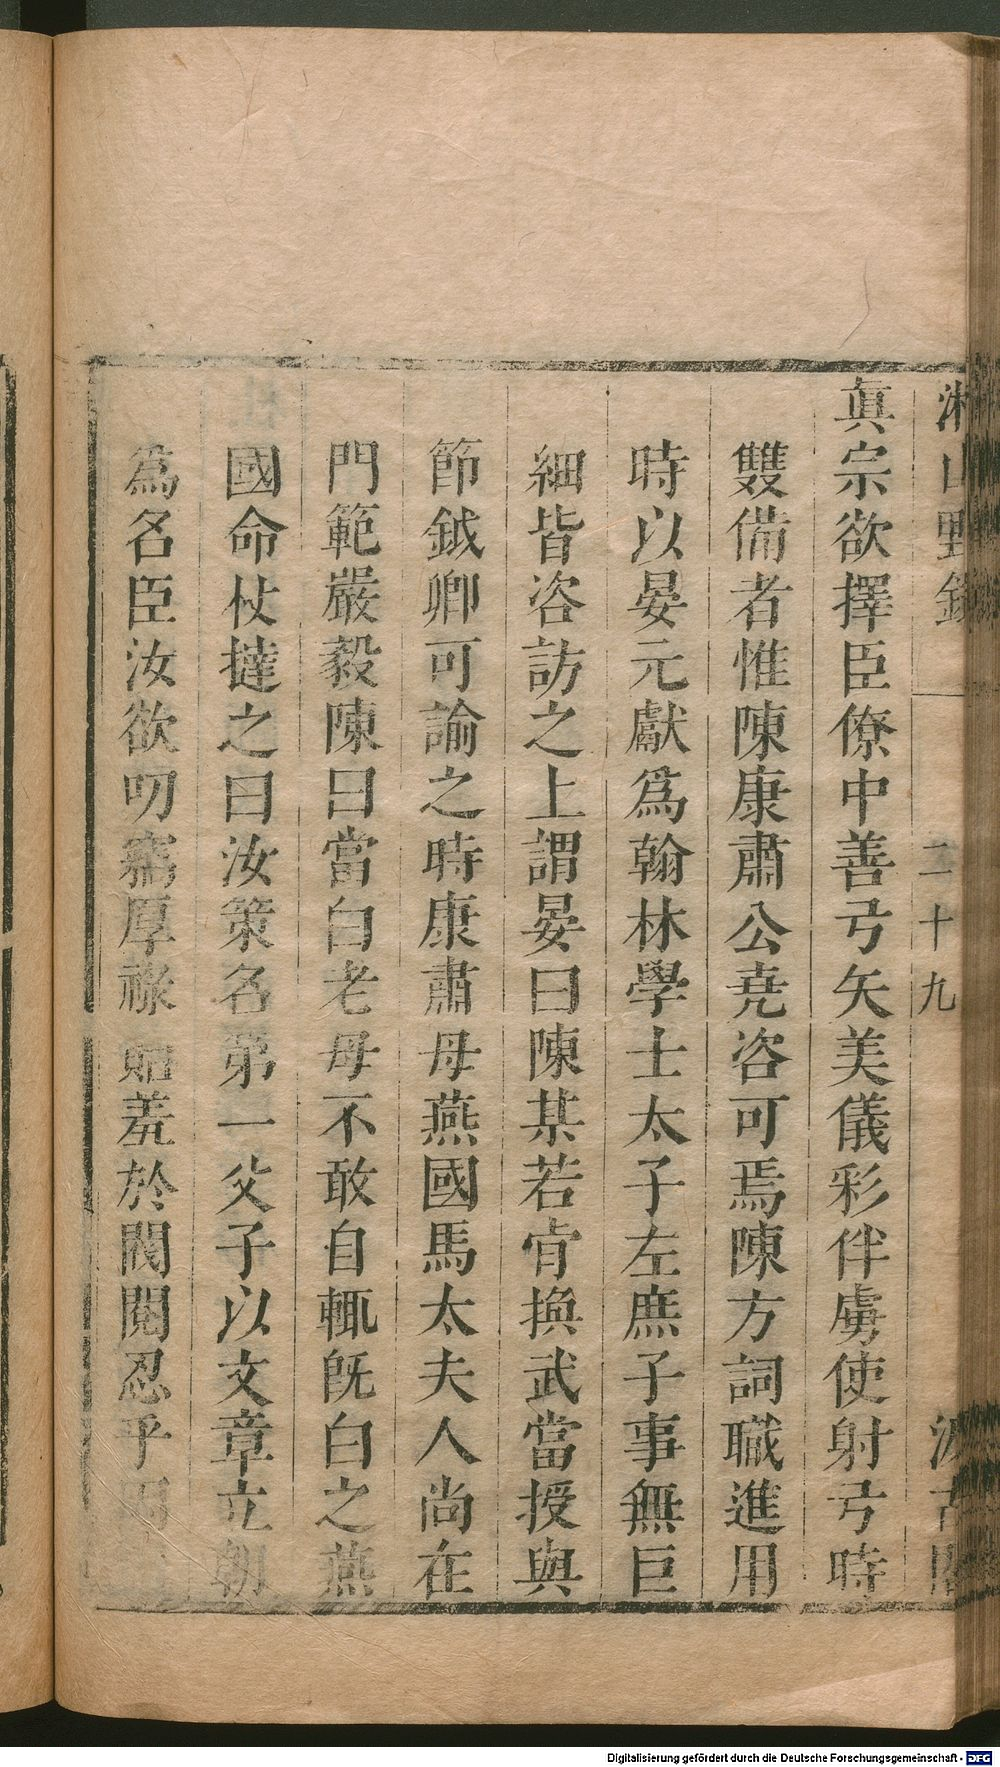 湘山野錄 二十九 汲古閣
眞宗欲擇臣僚中善弓矢美儀彩伴虜使射弓時
雙備者惟陳康肅公堯咨可焉陳方詞職進用
時以晏元獻爲翰林學士太子左庶子事無巨
細皆咨訪之上謂晏曰陳某若肯換武當授與
節鉞卿可諭之時康肅母燕國馬太夫人尚在
門範嚴毅陳曰當白老母不敢自輒旣白之燕
國命杖撻之曰汝策名第一父子以文章立朝
爲名臣汝欲叨竊厚祿貽羞於閥閱忍乎
Digitalisierung gefördert durch die Deutsche Forschungsgemeinschaft - DFG